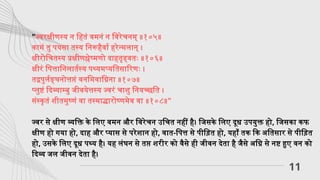 "ज्वरक्षीणस्य न हितं वमनं न विरेचनम् ॥१०५॥
कामं तु पयसा तस्य निरूहैर्वा हरेन्मलान् ।
क्षीरोचितस्य प्रक्षीणश्लेष्मणो दाहतृड्वतः ॥१०६॥
क्षीरं पित्तानिलार्तस्य पथ्यमप्यतिसारिणः ।
तद्वपुर्लङ्घनोत्तप्तं वनमिवाग्निना ॥१०७॥
प्लुष्टं दिव्याम्बु जीवयेत्तस्य ज्वरं चाशु नियच्छति ।
संस्कृतं शीतमुष्णं वा तस्माद्धारोष्णमेव वा ॥१०८॥"
ज्वर से क्षीण व्यक्ति के लिए वमन और विरेचन उचित नहीं है। जिसके लिए दूध उपयुक्त हो, जिसका कफ
क्षीण हो गया हो, दाह और प्यास से परेशान हो, वात-पित्त से पीड़ित हो, यहाँ तक कि अतिसार से पीड़ित
हो, उसके लिए दूध पथ्य है। यह लंघन से तप्त शरीर को वैसे ही जीवन देता है जैसे अग्नि से नष्ट हुए वन को
दिव्य जल जीवन देता है।
11